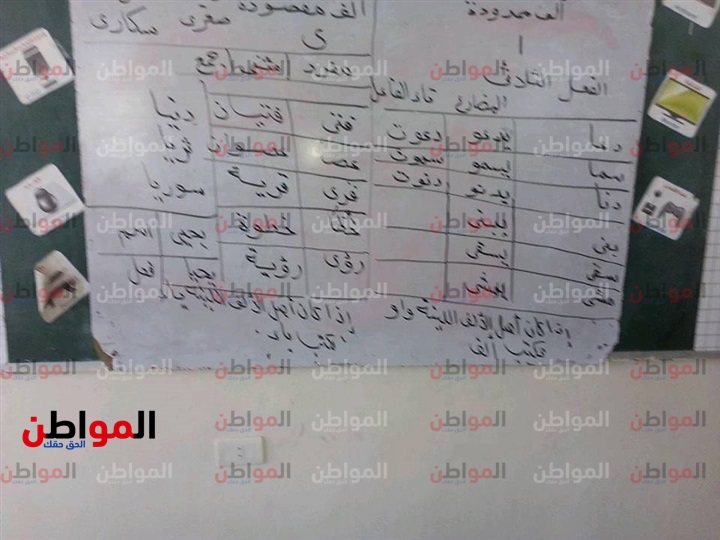 ألف ممدودة
ا
الفعل الثلاثي المضارع تاء الفاعل
دعا يدعو دعوت
سما يسمو سموت
دنا يدنو دنوت
يبني
يسقي
يمشي
إذا كان أصل الألف اللينة واو
تكتب ألف
ألف مقصورة
ى صغرى سكارى
مفرد مثنى جمع
فتى فتيان دنيا
عصا عصوان ثريا
قرى قرية سوريا
خطا خطوة يحيى اسم
رؤى رؤية يحيا فعل
إذا كان أصل الألف اللينة ياء
تكتب ياء
المواطن
الحق حقك